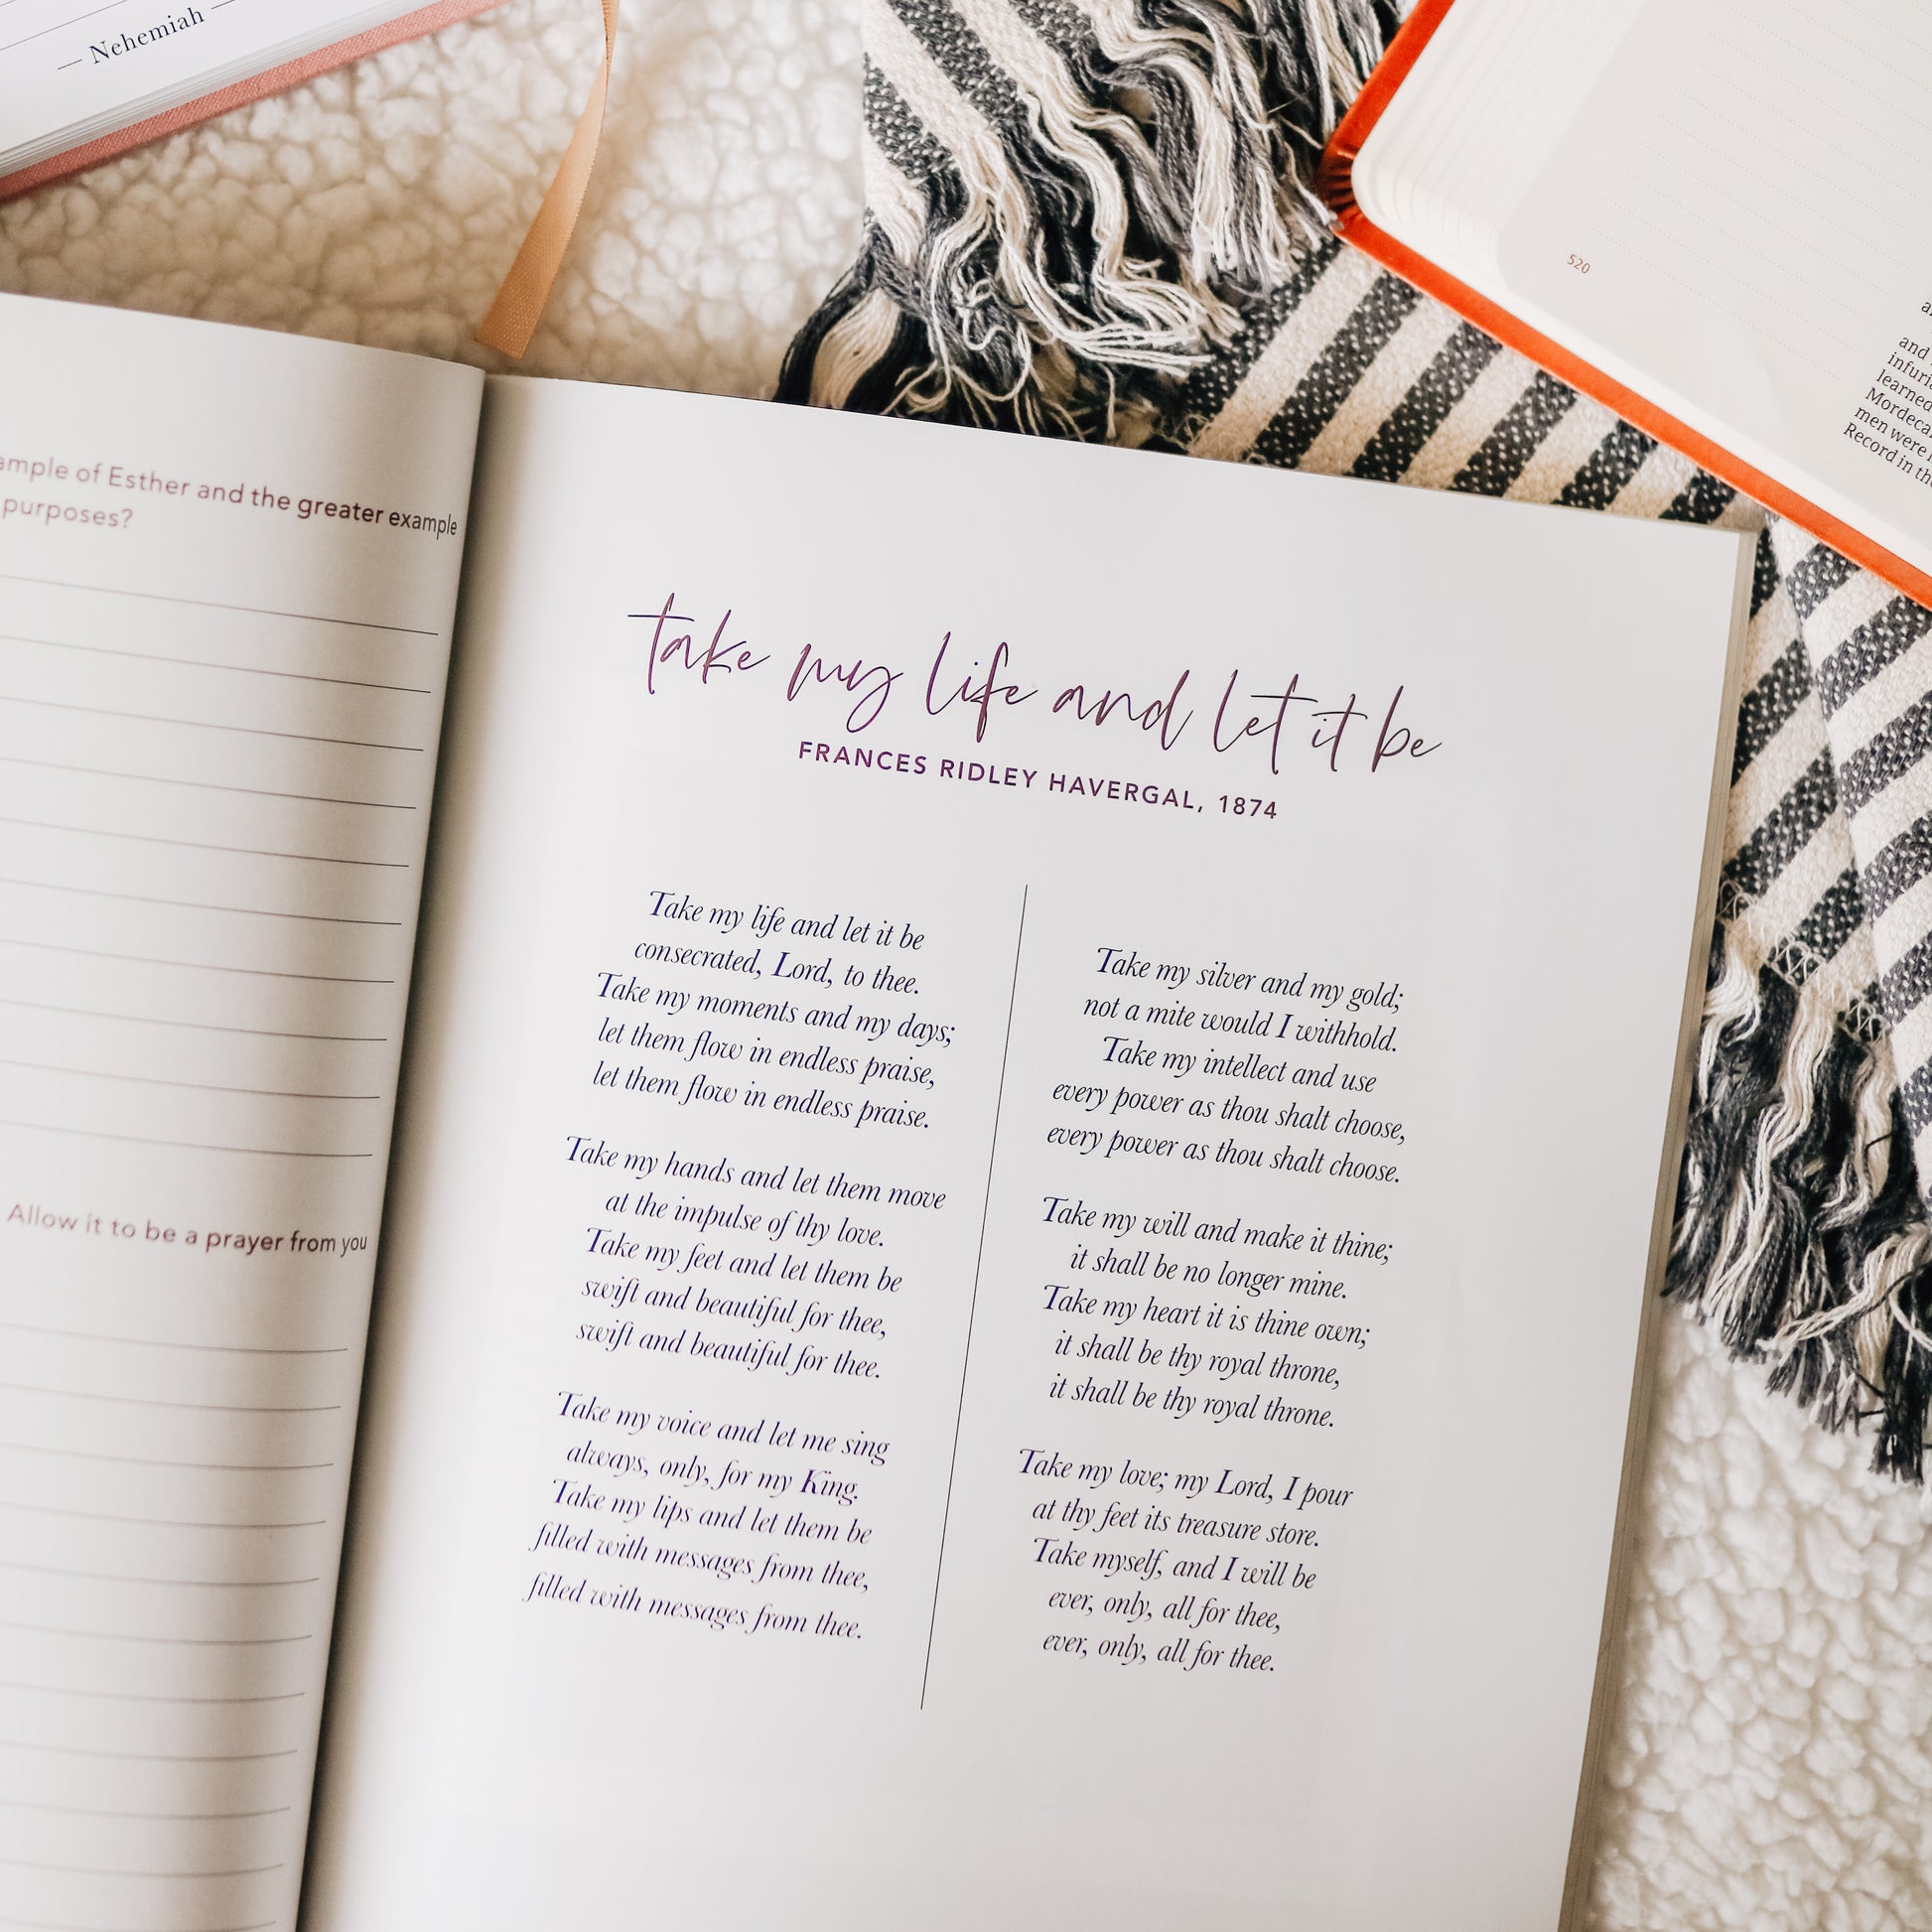 — Nehemiah —
520
and
learned
men were
Record in the
of Esther and the greater example
purposes?
Allow it to be a prayer from you
take my life and let it be
FRANCES RIDLEY HAVERGAL, 1874
Take my life and let it be
consecrated, Lord, to thee.
Take my moments and my days;
let them flow in endless praise,
let them flow in endless praise.
Take my hands and let them move
at the impulse of thy love.
Take my feet and let them be
swift and beautiful for thee,
swift and beautiful for thee.
Take my voice and let me sing
always, only, for my King.
Take my lips and let them be
filled with messages from thee,
filled with messages from thee.
Take my silver and my gold;
not a mite would I withhold.
Take my intellect and use
every power as thou shalt choose,
every power as thou shalt choose.
Take my will and make it thine;
it shall be no longer mine.
Take my heart it is thine own;
it shall be thy royal throne,
it shall be thy royal throne.
Take my love; my Lord, I pour
at thy feet its treasure store.
Take myself, and I will be
ever, only, all for thee,
ever, only, all for thee.